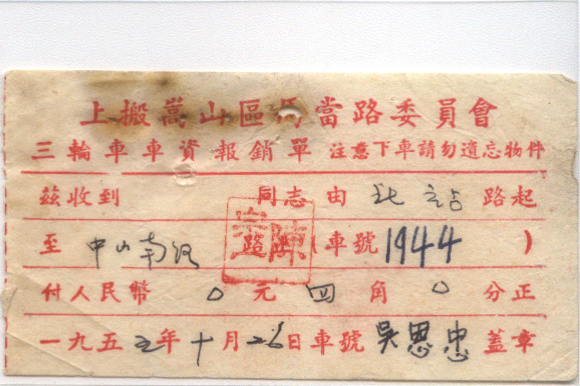 上搬嵩山區馬當路委員會
三輪車車資報銷單 注意下車請勿遺忘物件
茲收到 同志由 北站 路起
至 中山南路 路止(車號 1944 )
付人民幣 0 元 四 角 0 分正
一九五五年十月26日車號 吳恩忠 蓋章